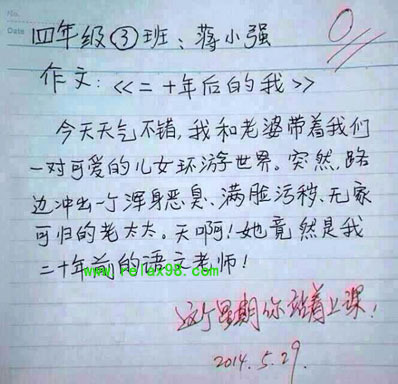 No.
Date
0
四年级③班：蒋小强
作文：《二十年后的我》
今天天气不错，我和老婆带着我们
一对可爱的儿女环游世界。突然，路
边冲出一个浑身恶臭、满脸污秽、无家
可归的老太太。天啊！她竟然是我
二十年前的语文老师！
www.relax98.com
这个星期你站着上课！
2014.5.29.